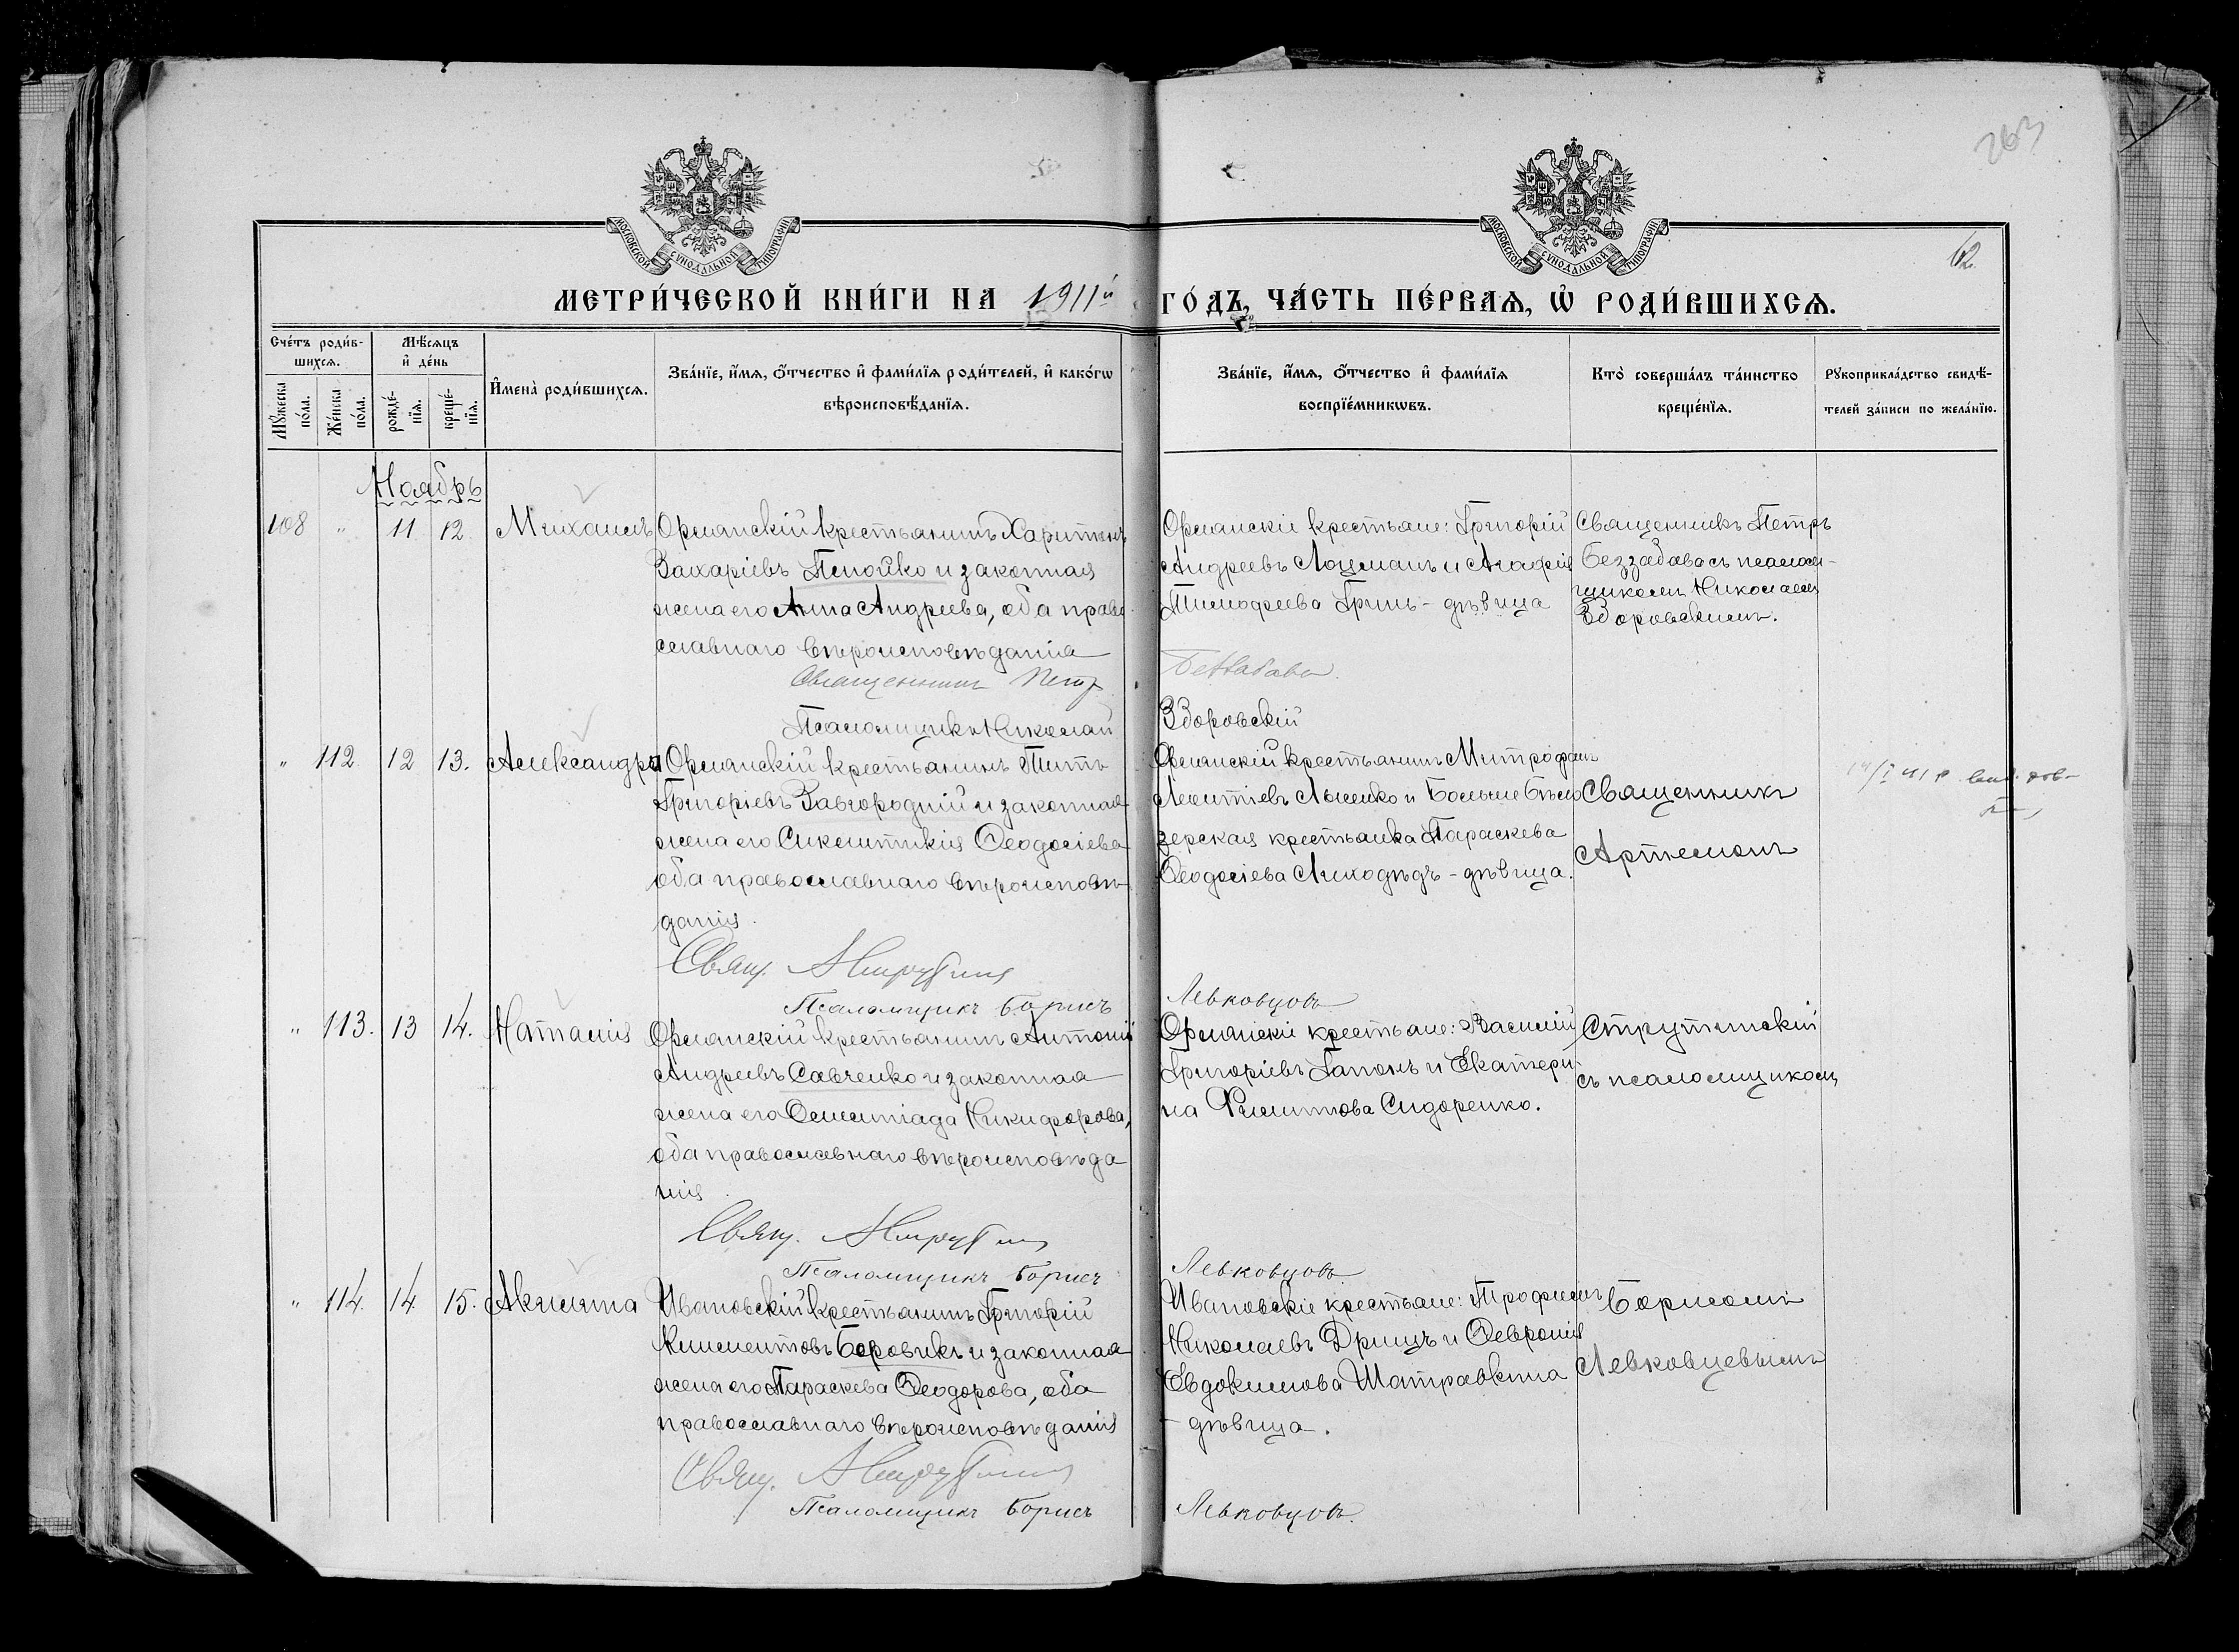 263
МОСКОВСКОЙ СѴНОДАЛЬНОЙ ТИПОГРАФІИ
МОСКОВСКОЙ СѴНОДАЛЬНОЙ ТИПОГРАФІИ
МЕТРИ́ЧЕСКОЙ КНИ́ГИ НА 1911й ГО́ДЪ, ЧА́СТЬ ПЕ́РВАЯ, Ѽ РОДИ́ВШИХСЯ.
Сче́тъ роди́в-
шихся.
Мꙋ́жеска по́ла.
Же́нска по́ла.
Мѣ́сяцъ
и҆ де́нь
рожде́-
нїя.
креще́-
нїя.
И҆мена̀ роди́вшихся.
Зва́нїе, и҆́мя, ѻ҆́тчество и҆ фами́лїя роди́телей, и҆ како́гѡ
вѣроисповѣ́данїя.
Зва́нїе, и҆́мя, ѻ҆́тчество и҆ фами́лїя
воспрїе́мникѡвъ.
Кто̀ соверша́лъ та́инство
креще́нїя.
Рꙋкоприкла́дство свидѣ́-
телей за́писи по жела́нїю.
Ноябрь
108 " 11 12 Михаилъ
Орлянскій крестьянинъ Харитонъ
Захаріевъ Пепойко и законная
жена его Анна Андреева, оба право
славнаго вѣроисповѣданія
Священникъ Петр
Псаломщикъ Николай
Орлянскіе крестьяне: Григорій
Андреевъ Лоцманъ и Агафія
Тимофеева Гринь - дѣвица
Беззабава
Здоровскій
Священникъ Петръ
Беззабава съ псалом-
щикомъ Николаемъ
Здоровскимъ.
" 112. 12 13. Александра
Орлянскій крестьянинъ Титъ
Григоріевъ Завгородній и законная
жена его Синклитикія Ѳеодосіева
оба православнаго вѣроисповѣ-
данія.
Свящ.
Псаломщикъ Борисъ
Орлянскій крестьянинъ Митрофанъ
Леонтіевъ Лысенко и Больше Бѣло
зерская крестьянка Параскева
Ѳеодосіева Лиходѣдъ - дѣвица.
Левковцовъ
Священникъ
Артемонъ
" 113. 13 14. Наталія
Орлянскій крестьянинъ Антоній
Андреевъ Савченко и законная
жена его Олимпіада Никифорова,
оба православнаго вѣроисповѣда
нія
Свящ.
Псаломщикъ Борисъ
Орлянскіе крестьяне: Василій
Григоріевъ Гапонъ и Екатери
на Филиппова Сидоренко.
Левковцовъ
Струтинскій
съ псаломщикомъ
" 114. 14 15. Акилина
Ивановскій крестьянинъ Григорій
Климентовъ Боровикъ и законная
жена его Параскева Ѳеодорова, оба
православнаго вѣроисповѣданія
Свящ.
Псаломщикъ Борисъ
Ивановскіе крестьяне: Трофимъ
Николаевъ Дрищъ и Ѳевронія
Евдокимова Шатравкина
- дѣвица.
Левковцовъ.
Борисомъ
Левковцевымъ